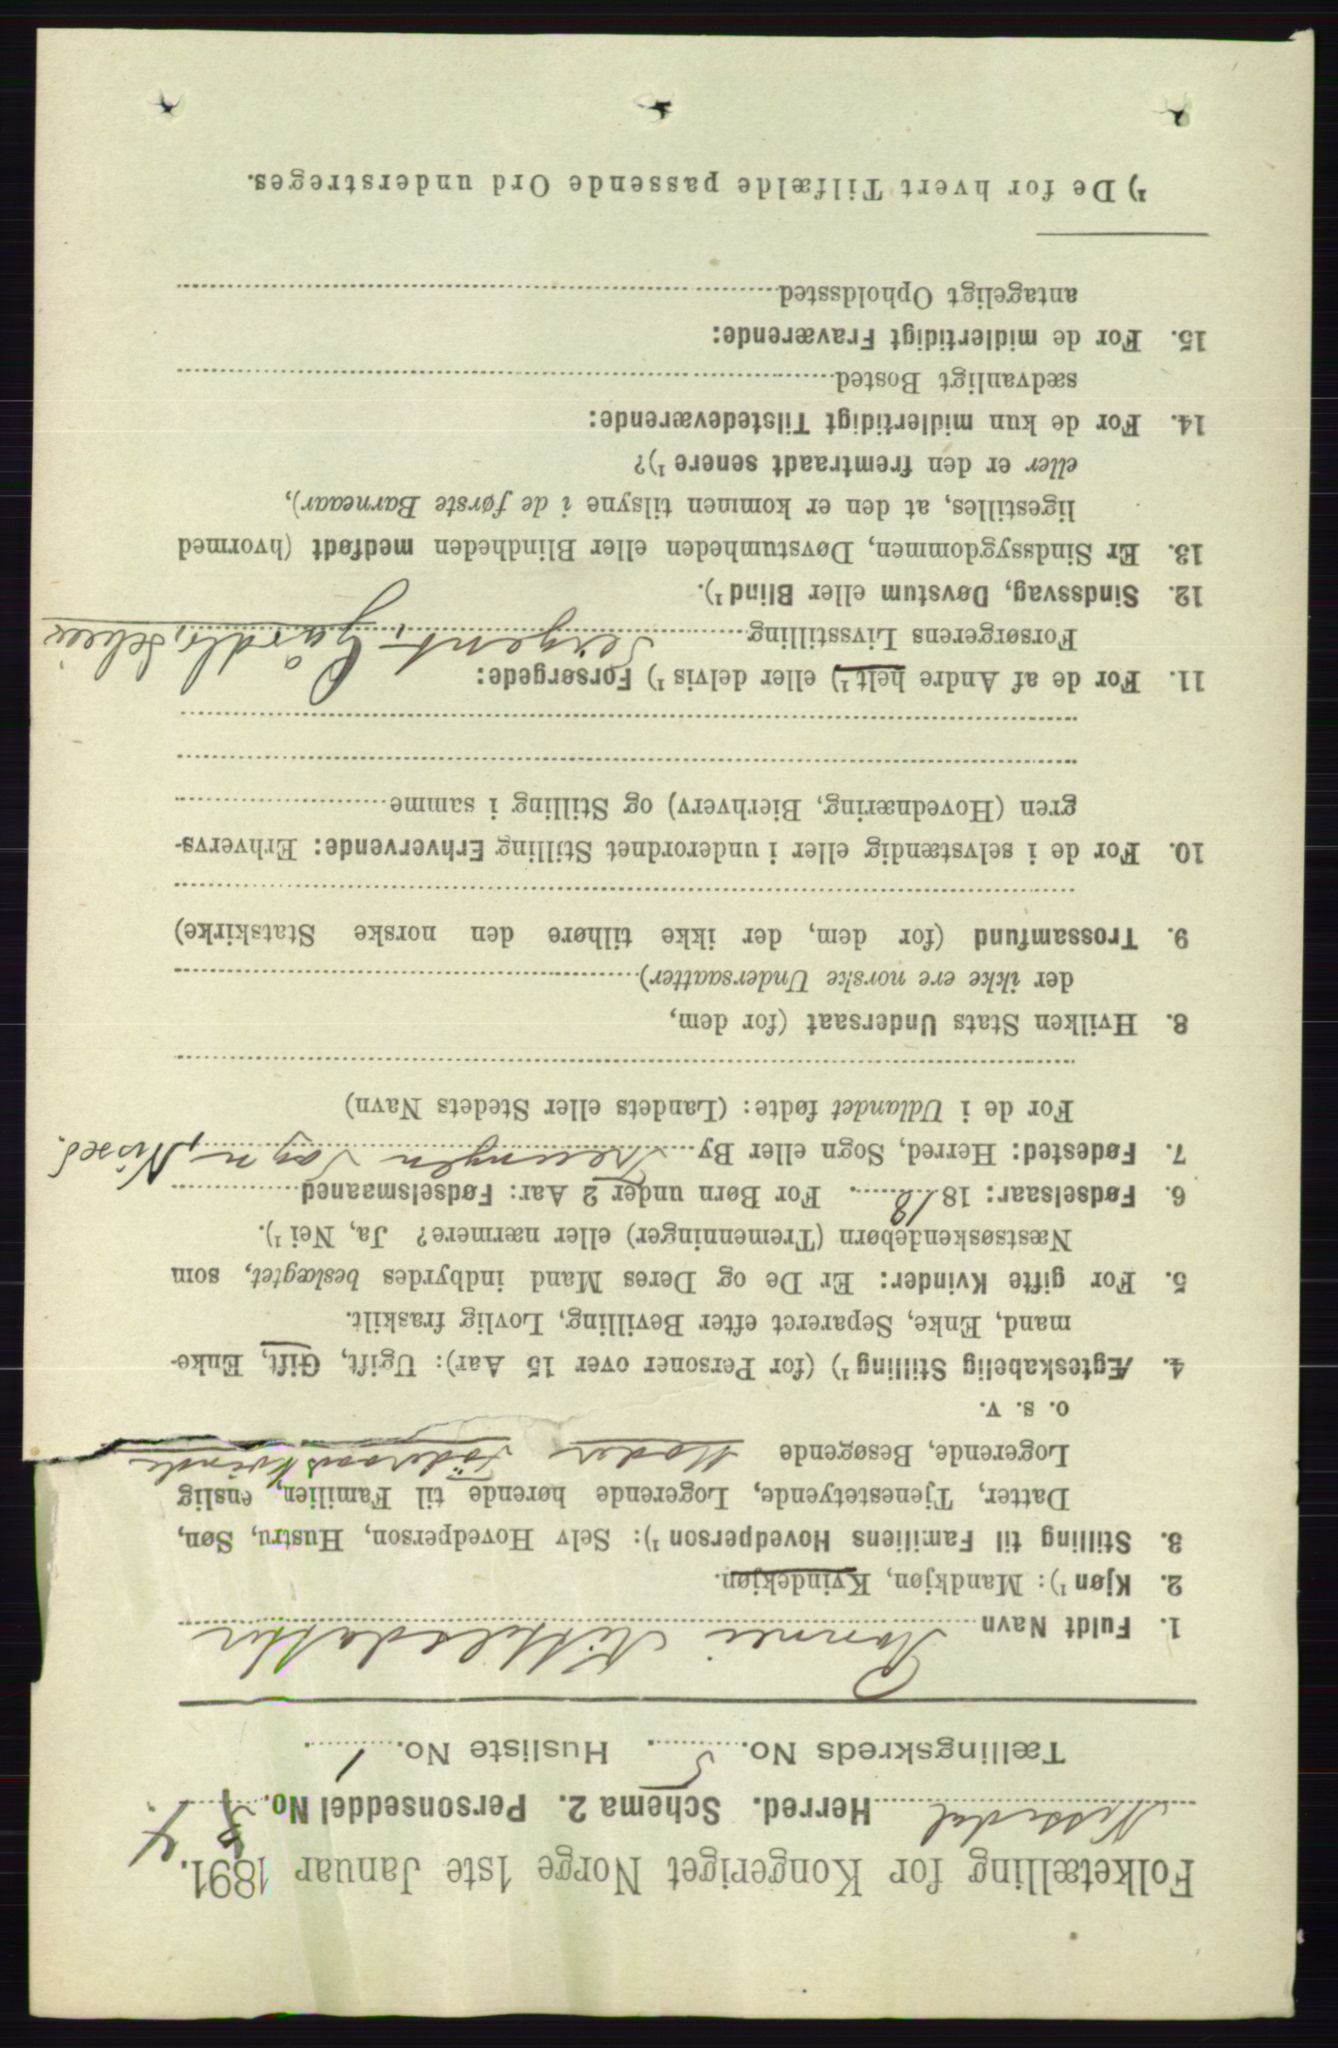 Folketælling for Kongeriget Norge 1ste Januar 1891.
Nissedal Herred. Schema 2. Personseddel No. 4.
Tællingskreds No. 5. Husliste No. 1.
1. Fuldt Navn Kittelsdatter
2. Kjøn ¹): Mandkjøn, Kvindekjøn.
3. Stilling til Familiens Hovedperson ¹): Selv Hovedperson, Hustru, Søn,
Datter, Tjenestetyende, Logerende hørende til Familien, enslig
Logerende, Besøgende Moder Föderaadskvinde
o. s. v.
4. Ægteskabelig Stilling ¹) (for Personer over 15 Aar): Ugift, Gift, Enke-
mand, Enke, Separeret efter Bevilling, Lovlig fraskilt.
5. For gifte Kvinder: Er De og Deres Mand indbyrdes beslægtet, som
Næstsøskendebørn (Tremenninger) eller nærmere? Ja, Nei ¹).
6. Fødselsaar: 1818. For Børn under 2 Aar: Fødselsmaaned
7. Fødested: Herred, Sogn eller By Treungen Sogn, Nissed.
For de i Udlandet fødte: (Landets eller Stedets Navn)
8. Hvilken Stats Undersaat (for dem,
der ikke ere norske Undersaatter)
9. Trossamfund (for dem, der ikke tilhøre den norske Statskirke)
10. For de i selvstændig eller i underordnet Stilling Erhvervende: Erhvervs-
gren (Hovednæring, Bierhverv) og Stilling i samme
11. For de af Andre helt ¹) eller delvis ¹) Forsørgede:
Forsørgerens Livsstilling Sergent, Gårdb, Seleier
12. Sindssvag, Døvstum eller Blind ¹).
13. Er Sindssygdommen, Døvstumheden eller Blindheden medfødt (hvormed
ligestilles, at den er kommen tilsyne i de første Barneaar),
eller er den fremtraadt senere ¹)?
14. For de kun midlertidigt Tilstedeværende:
sædvanligt Bosted
15. For de midlertidigt Fraværende:
antageligt Opholdssted
¹) De for hvert Tilfælde passende Ord understreges.